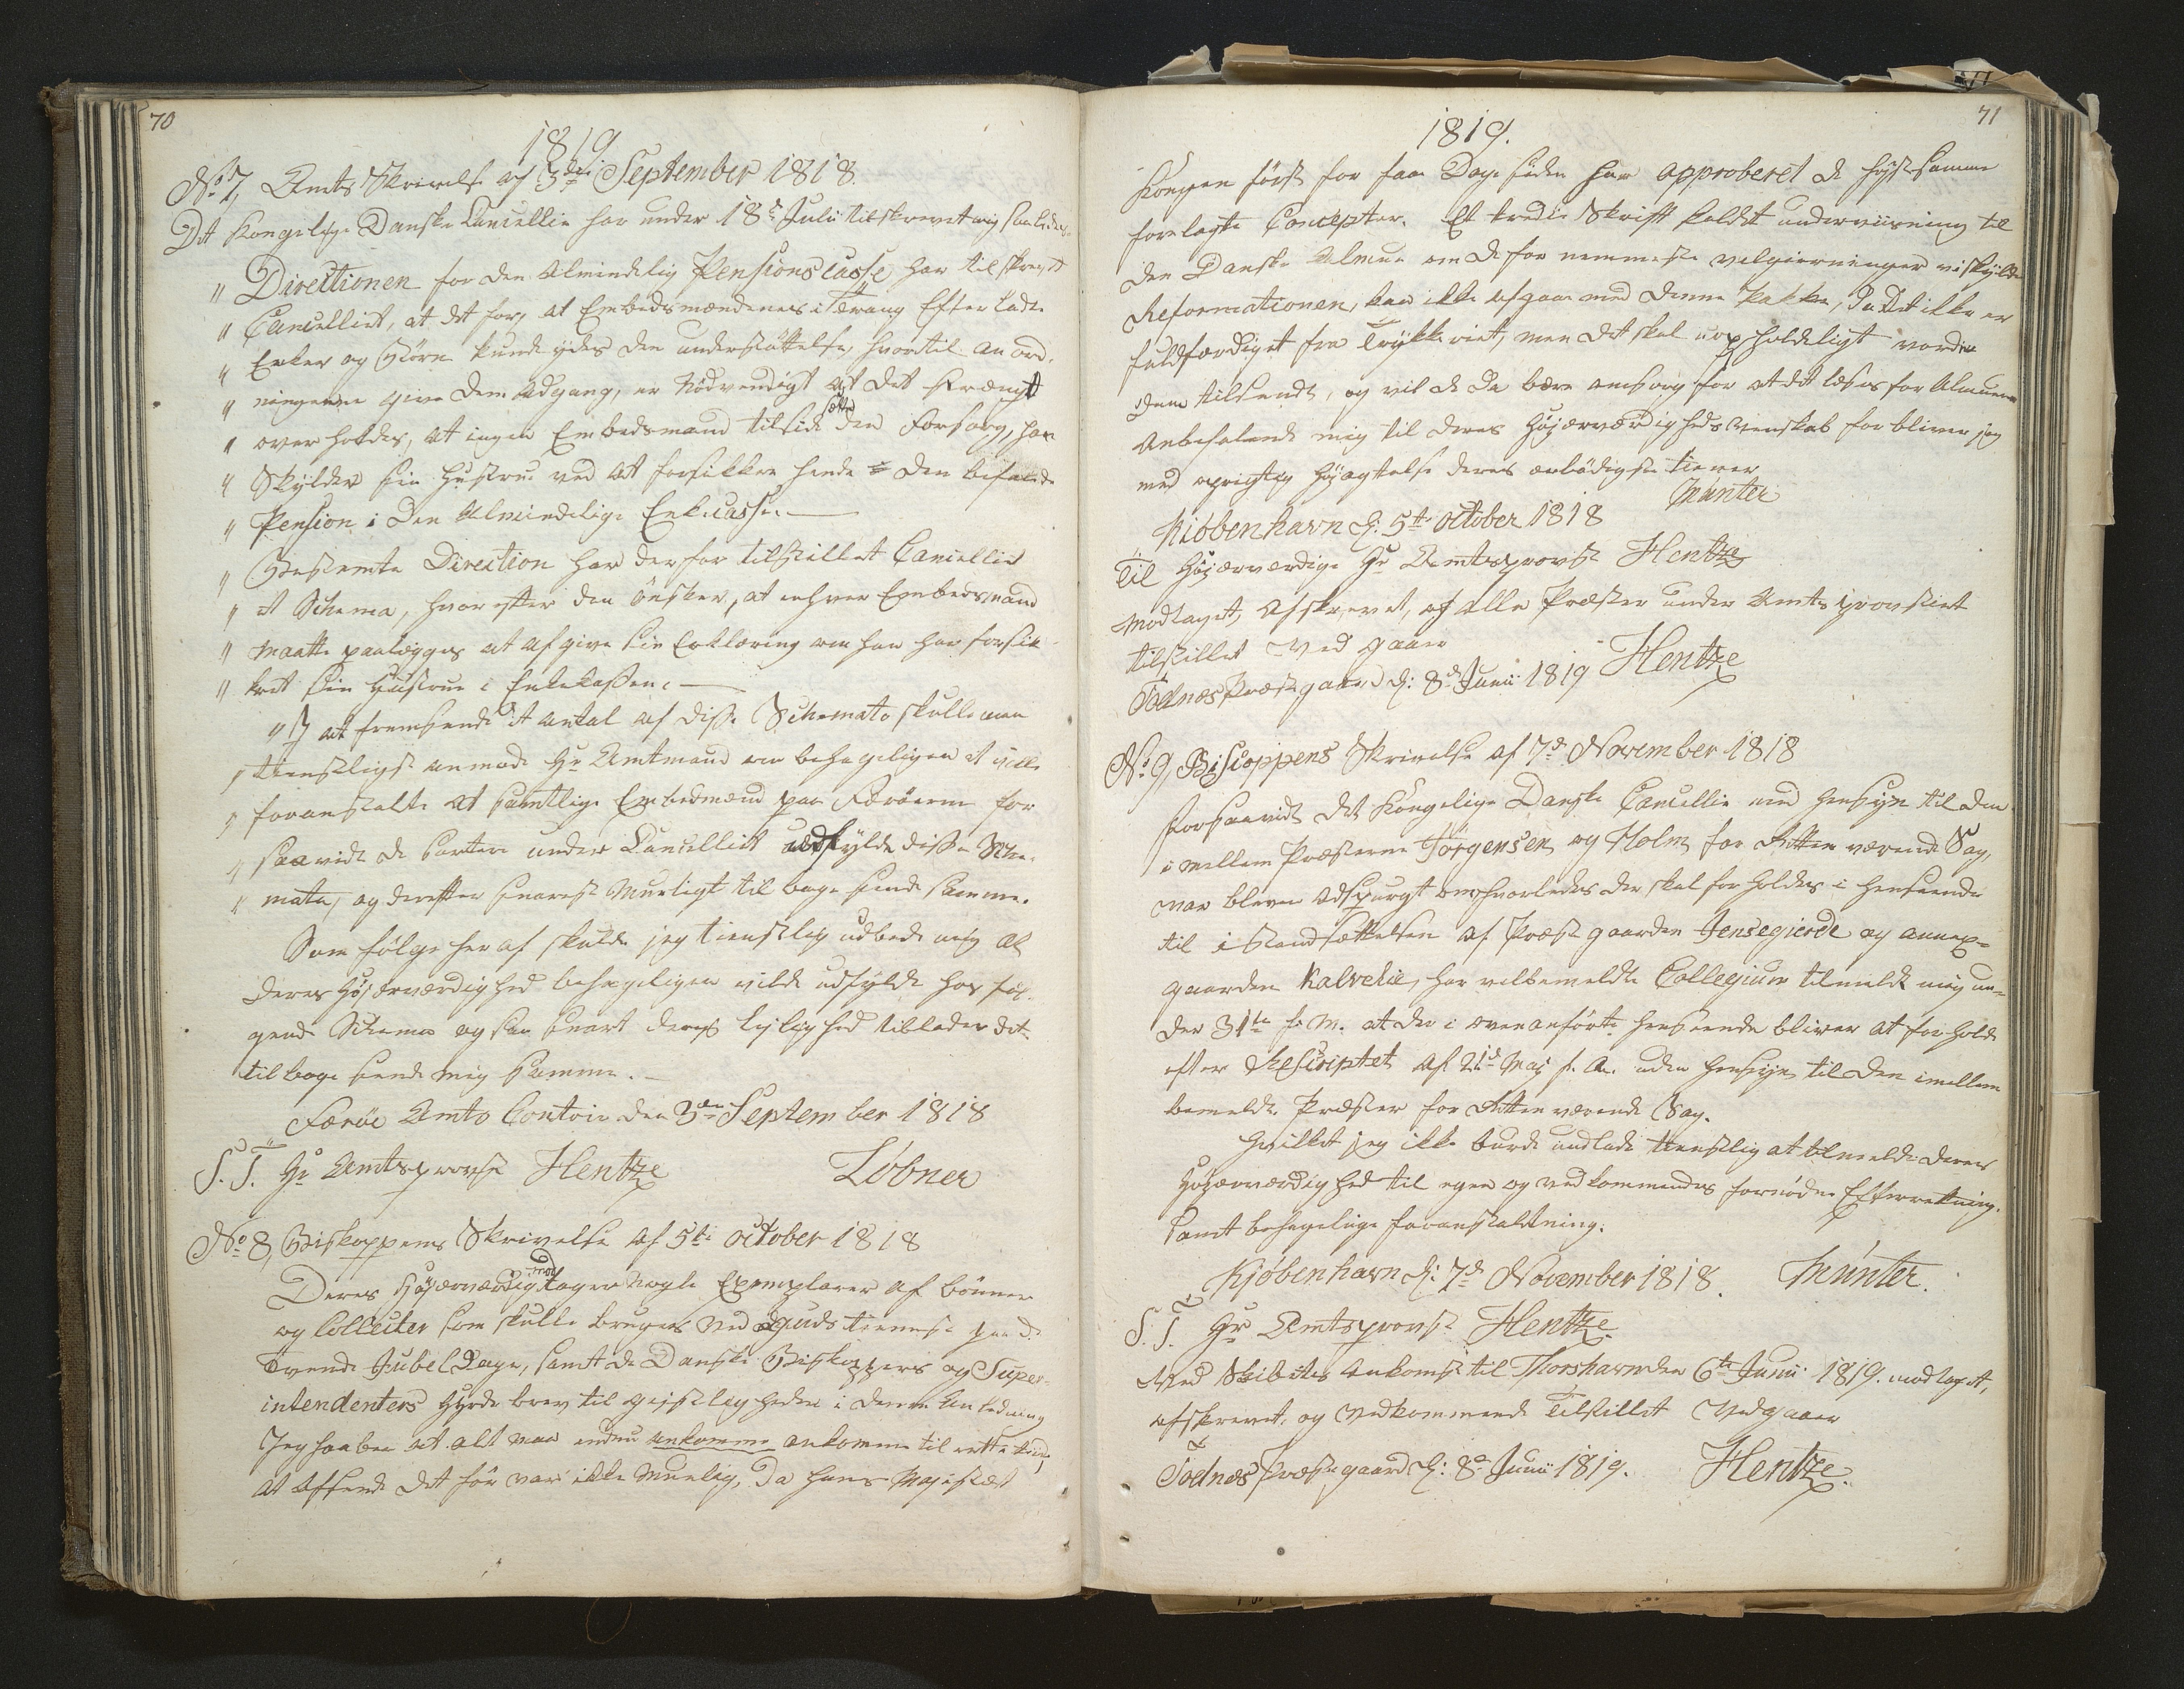 70
1819
No 7, Amts Skrivelse af 3die September 1818.
Det Kongelige Danske Cancellie har under 18de Julii tilskrevet mig saaledes
" Directionen for den Almindelig Pensions Casse har tilskrevet
" Cancelliet, at det for, at Embedsmændenes i Trang Efterladte
" Enker og Børn kunde ydes den understøttelse, hvortil anord-
" ningerne give dem Adgang, er Nødvendigt at det strængt
" overholdes, at ingen Embedsmand tilside sætter den Forsorg, han
" Skylder sin Hustrue ved at forsikkre hende den befalede
" Pension i den Almindelige Enkecasse.
" Bestemte Direction har derfor tilstillet Cancellie
" et Schema, hvorefter den ønsker, at enhver Embedsmand
" maatte paalægges at afgive sin Erklæring om han har forsik-
" kret sin Hustrue i Enkekassen.
" at fremsende et Antal af disse Schemata skulle man
" tienstligst anmode Hr Amtmand om behageligen at ville
" foranstalte at samtlige Embedsmænd paa Færøerne for
" saavidt de sortere under Cancelliet udfylde disse Sche-
" mata, og derefter snarest Mueligt tilbage sende samme.
Som følge heraf skulde jeg tienstlig udbede mig at
Deres Høiærværdighed behageligen vilde udfylde hos føl-
gende Schema og saa snart deres Leylighed tillader det
tilbage sende mig samme.
Færøe Amts Contoir den 3die September 1818
S. T. Hr Amtsprovst Hentze Løbner
No 8, Biskoppens Skrivelse af 5te October 1818
Deres Høiærværdig modtager nogle Exemplarer af bønner
og Collecter som skulle bruges ved Guds tieneste paa de
tvende Jubel Dage, samt de Danske Biskoppers og Super-
intendenters Hyrde brev til geistligheden i denne Anledning
Jeg haaber at alt maa endnu ankomme ankomme til rette tiid,
at Afsende det før var ikke Muelig, da Hans Majestæt
71
1819.
Kongen først for faa Dage siden har approberet de høistsamme
forelagte Concepter. Et tredie Skrift kaldet underviisning til
den Danske Almue om de fornemmeste velgierninger vi skylde
Reformationen, kan ikke afgaae med denne Pakke, da det ikke er
fuldfærdiget fra Trykkeriet, men det skal uopholdeligt vorde
dem tilsendt, og vil de da bære omsorg for at det læses for Almuen
Anbefalende mig til deres Høiærværdigheds Venskab forbliver jeg
med oprigtig Høiagtelse deres ærbødigste tiener
Münter
Kiøbenhavn d: 5te October 1818
Til Høiærværdige Hr Amtsprovst Hentze
Modtaget, Afskrevet, og alle Præster under Amts provstiet
tilstillet Ved gaaer
Todnæs Præstegaard d: 8de Junii 1819 Hentze
No 9, Biscoppens Skrivelse af 7de November 1818
Forsaavidt det Kongelige Danske Cancellie med Hensyn til den
imellem Præsterne Jørgensen og Holm for Retten værende Sag,
var bleven adspurgt om hvorledes der skal forholdes i henseende
til i Standsættelsen af Præstegaarden Jensegierde og annex-
gaarden Kalvelie, har velbemeldte Collegium tilmeldt mig un-
der 31te f. M. at der i ovenanførte henseende bliver at forholde
efter Rescriptet af 21de Maj f. A. uden Hensyn til den imellem
bemeldte Præster for Retten værende Sag.
Hvilket jeg ikke burde undlade tienstlig at tilmelde Deres
Høiærværdighed til egen og vedkommendes fornødne Efterretning.
samt behagelige foranstaltning.
Kjøbenhavn d: 7de November 1818. Münter.
S. T. Hr Amtsprovst Hentze.
Med Skibets Ankomst til Thorshavn den 6te Junii 1819. modtaget,
afskrevet, og Vedkommende Tilstillet Vedgaaer
Todnæs Præstegaard d: 8de Junii 1819. Hentze.